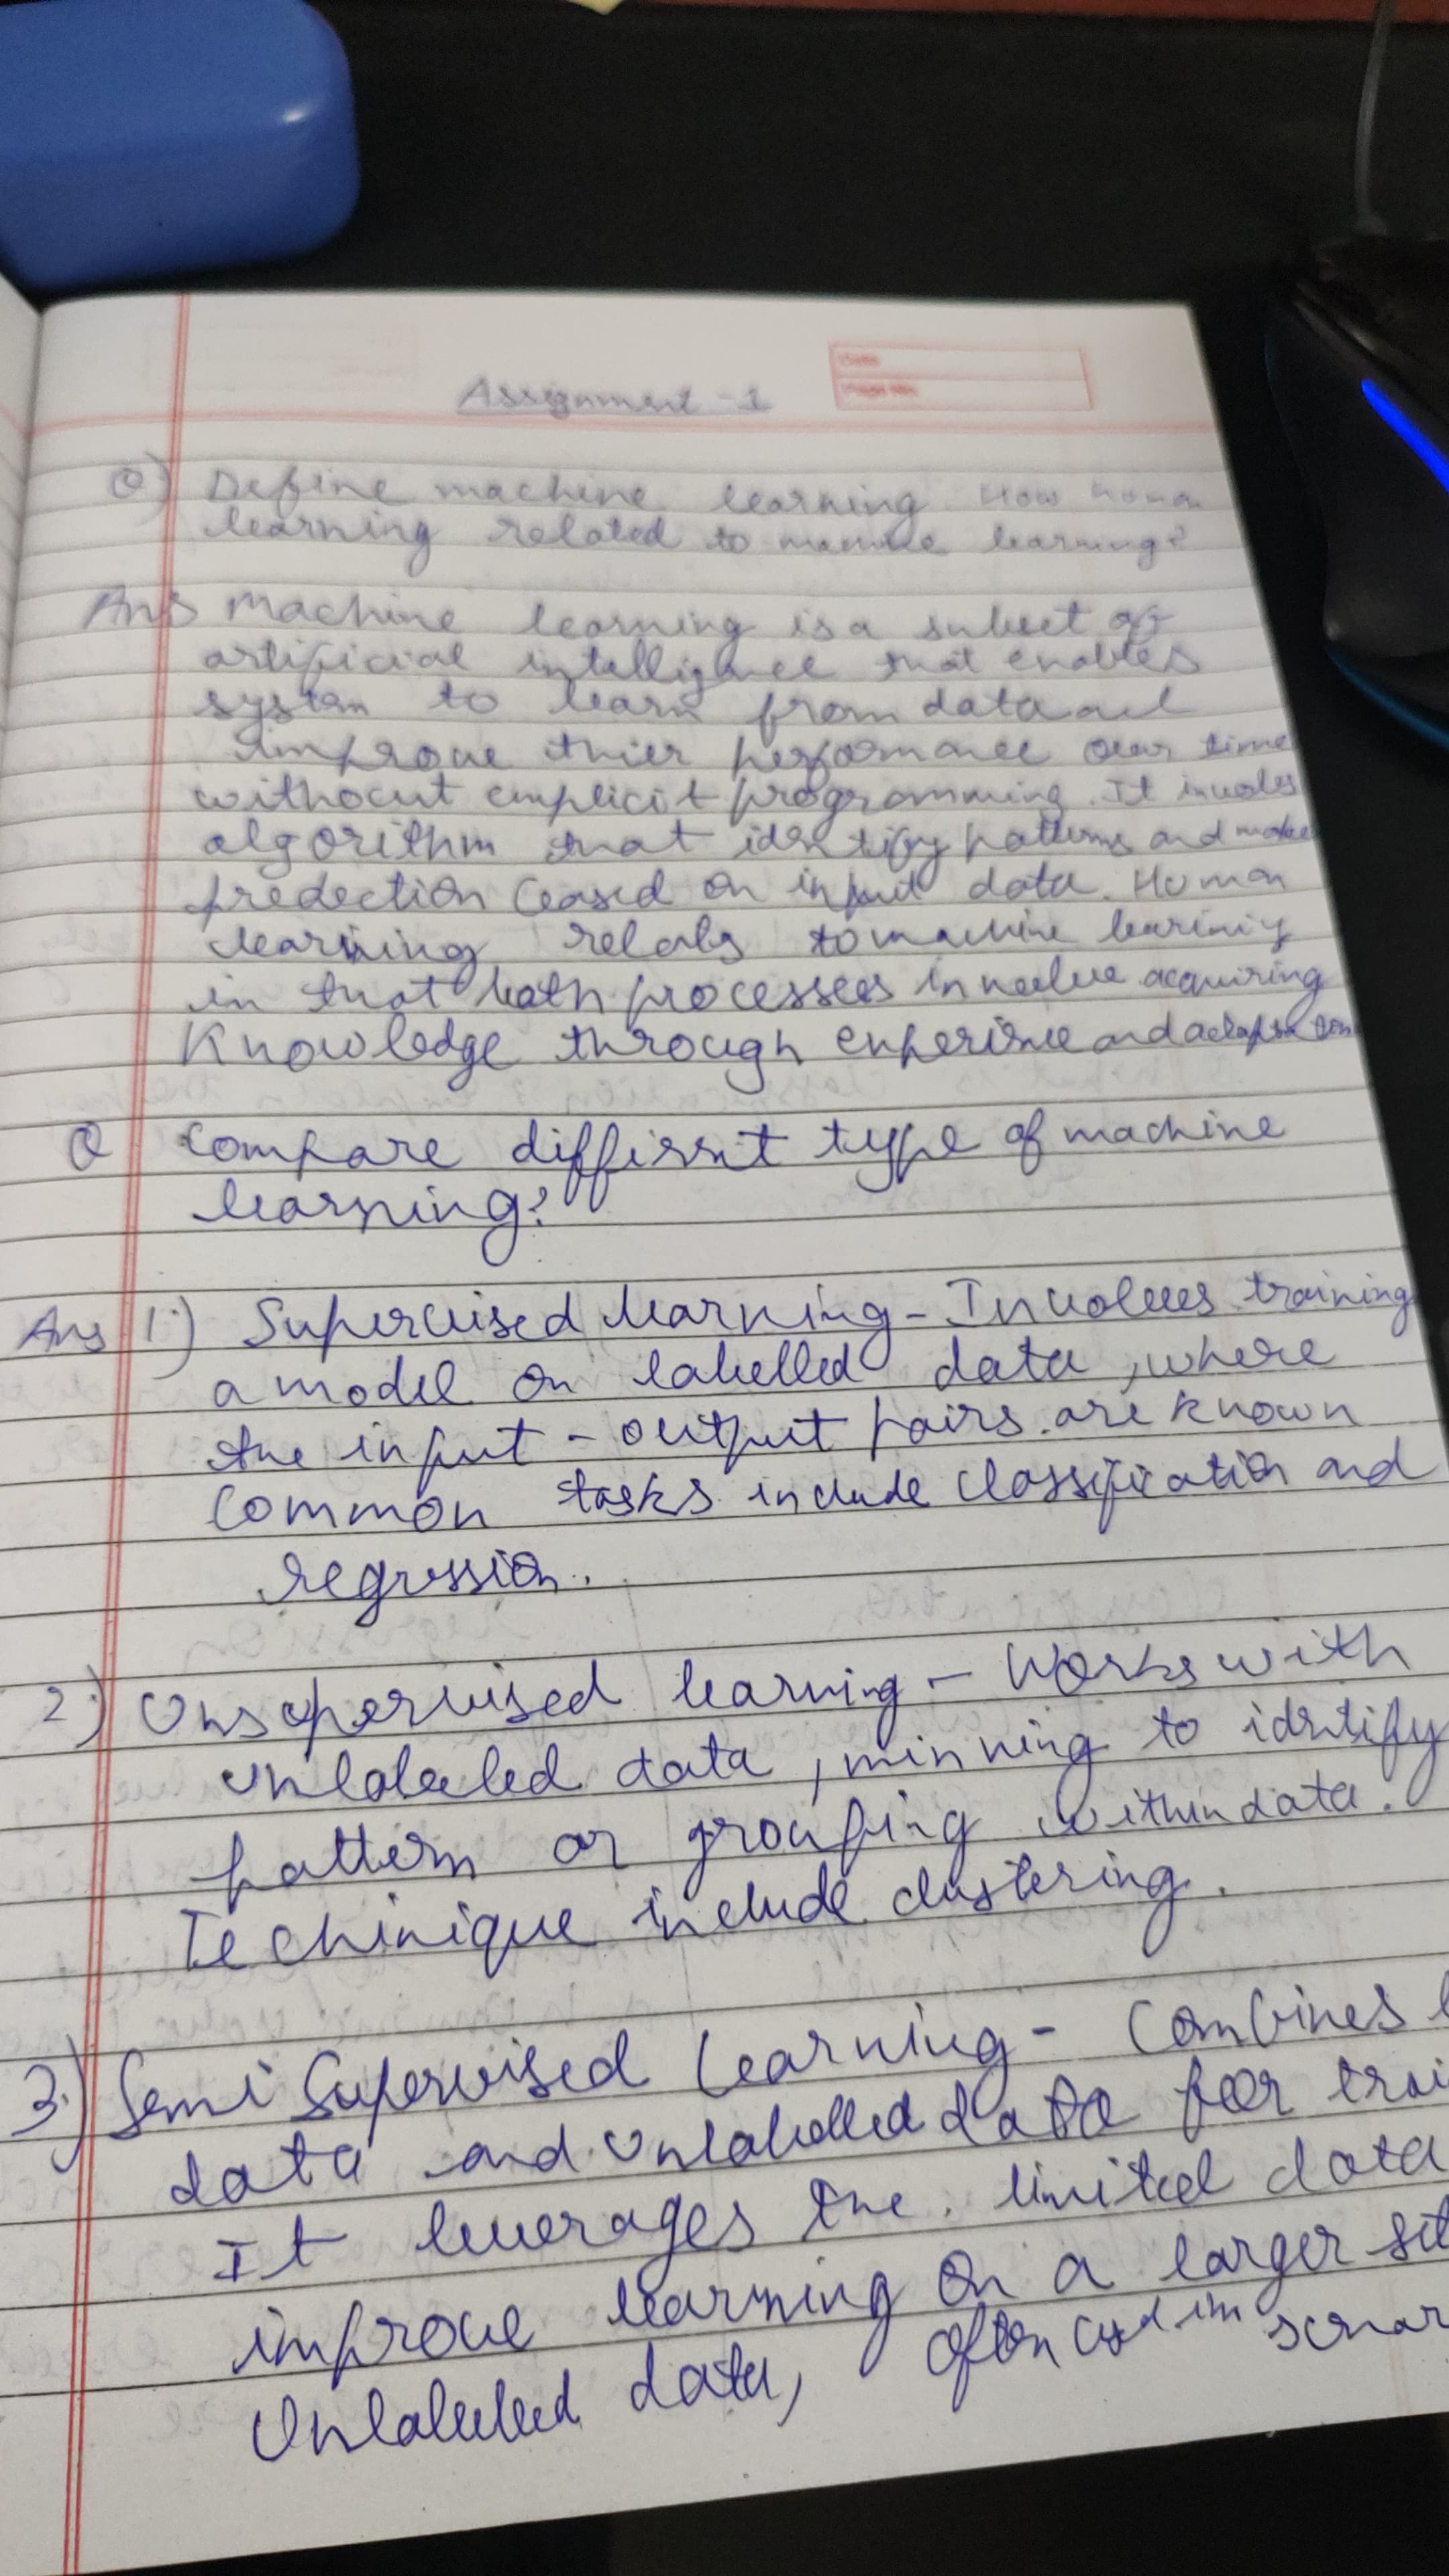 Date
Page No.
Assignment - 1
Q) Define machine learning. How human
learning related to machine learning?
Ans Machine learning is a subset of
artificial intelligence that enables
system to learn from data and
improve thier performance over time
without emplicit programming. It involes
algorithm that identify patterns and make
predection based on input data. Human
learning relats to machine learining
in that both processes involve acquiring
Knowledge through experience and adaptation
Q compare different type of machine
learning?
Ans 1.) Supervised learning - Involves training
a model on labelled data, where
the input - output pairs are known
Common tasks include classification and
regression.
2.) Unsupervised learning - Works with
unlabeled data, minning to identify
pattern or grouping within data.
Techinique include clustering.
3.) Semi Supervised Learning - Combines
data and unlabelled data for trai
It leverages the limited data
improve learning on a larger set
Unlabelled data, often used in scenar